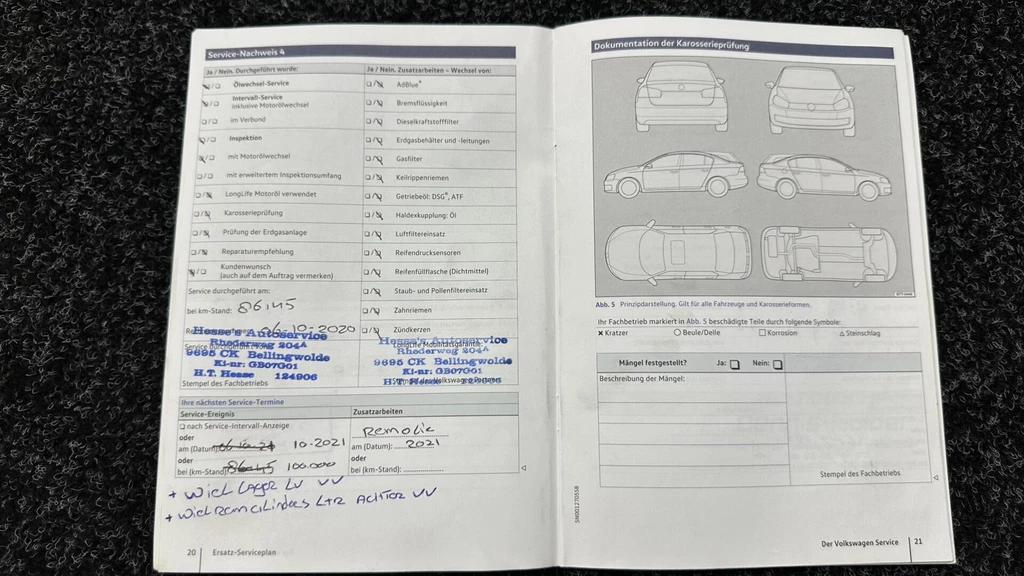 Service-Nachweis 4
Ja / Nein. Durchgeführt wurde:
Ölwechsel-Service
Intervall-Service
inklusive Motorölwechsel
im Verbund
Inspektion
mit Motorölwechsel
mit erweitertem Inspektionsumfang
LongLife Motoröl verwendet
Karosserieprüfung
Prüfung der Erdgasanlage
Reparaturempfehlung
Kundenwunsch
(auch auf dem Auftrag vermerken)
Service durchgeführt am:
bei km-Stand: 86,45
06-10-2020
Hesse's Autoservice
Rhederweg 204A
9695 CK Bellingwolde
Ki-nr: GB07G01
H.T. Hesse 124906
Stempel des Fachbetriebs
Ja / Nein. Zusatzarbeiten – Wechsel von:
AdBlue®
Bremsflüssigkeit
Dieselkraftstofffilter
Erdgasbehälter und -leitungen
Gasfilter
Keilrippenriemen
Getriebeöl: DSG®, ATF
Haldexkupplung: Öl
Luftfiltereinsatz
Reifendrucksensoren
Reifenfüllflasche (Dichtmittel)
Staub- und Pollenfiltereinsatz
Zahnriemen
Zündkerzen
LongLife Mobilitätsgarantie
Hesse's Autoservice
Rhederweg 204A
9695 CK Bellingwolde
Ki-nr: GB07G01
H.T. Hesse
Ihre nächsten Service-Termine
Service-Ereignis
nach Service-Intervall-Anzeige
oder
am (Datum): 10-2021
oder
bei (km-Stand): 86045 100.000
Zusatzarbeiten
Remolie
am (Datum): 2021
oder
bei (km-Stand):
+ Wiel Lager LV VV
+ Wielremcilinders L+R Achter VV
20 Ersatz-Serviceplan
Dokumentation der Karosserieprüfung
Abb. 5 Prinzipdarstellung. Gilt für alle Fahrzeuge und Karosserieformen.
Ihr Fachbetrieb markiert in Abb. 5 beschädigte Teile durch folgende Symbole:
Kratzer Beule/Delle Korrosion Steinschlag
Mängel festgestellt? Ja: Nein:
Beschreibung der Mängel:
Stempel des Fachbetriebs
SN001270558
Der Volkswagen Service 21